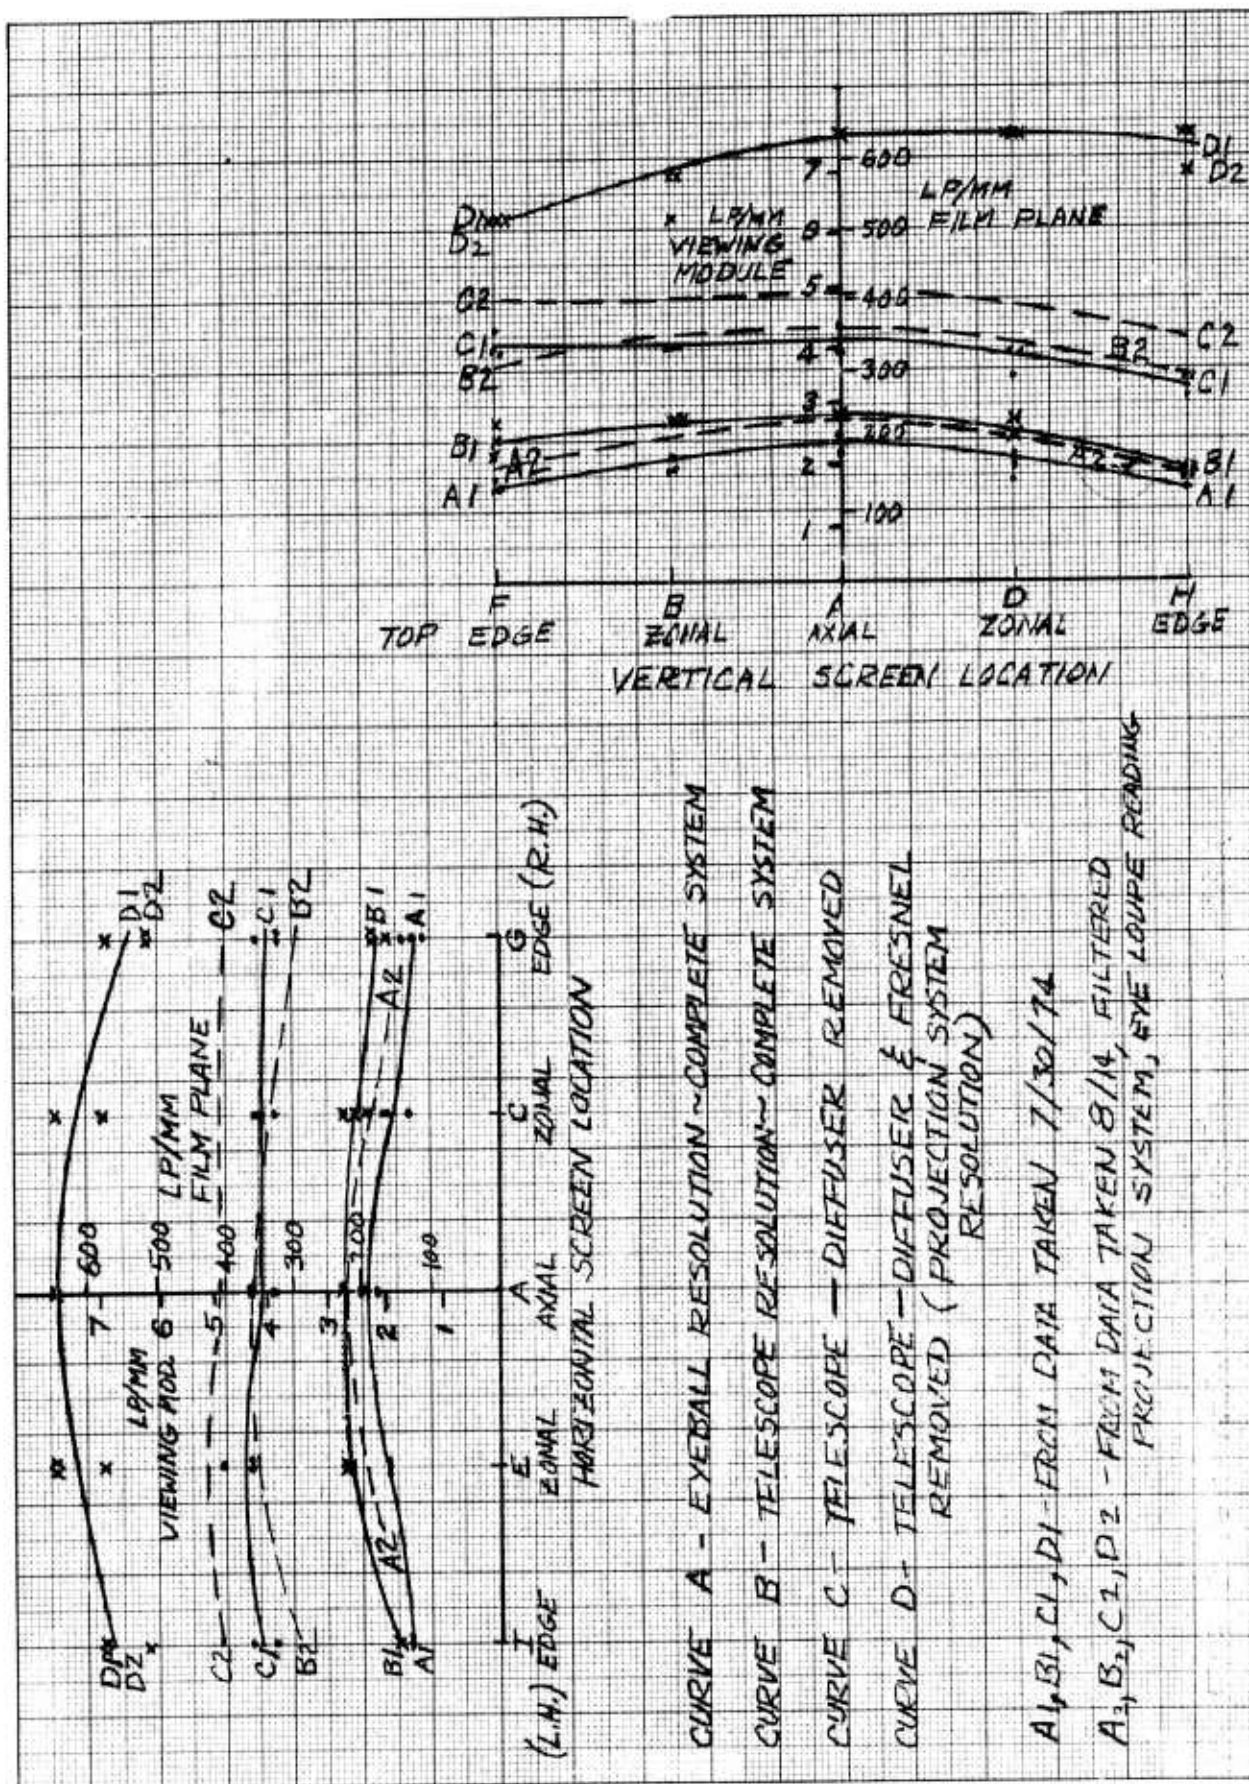 D1
D2
C2
C1
B2
B1
A2
A1
7
600
LP/MM
FILM PLANE
LP/MM
VIEWING
MODULE
500
5
400
4
300
3
200
2
100
1
D1
D2
C2
B2
C1
A2
B1
A1
F
B
A
D
H
TOP EDGE
ZONAL
AXIAL
ZONAL
EDGE
VERTICAL SCREEN LOCATION
D1
D2
C2
C1
B2
B1
A2
A1
LP/MM
VIEWING MOD.
7
6
5
4
3
2
1
600
500
400
300
200
100
LP/MM
FILM PLANE
D1
D2
C2
C1
B2
B1
A2
A1
I
E
A
C
G
(L.H.) EDGE
ZONAL
AXIAL
ZONAL
EDGE (R.H.)
HORIZONTAL SCREEN LOCATION
CURVE A - EYEBALL RESOLUTION ~ COMPLETE SYSTEM
CURVE B - TELESCOPE RESOLUTION ~ COMPLETE SYSTEM
CURVE C - TELESCOPE - DIFFUSER REMOVED
CURVE D - TELESCOPE - DIFFUSER & FRESNEL
REMOVED (PROJECTION SYSTEM
RESOLUTION)
A1, B1, C1, D1 - FROM DATA TAKEN 7/30/74
A2, B2, C2, D2 - FROM DATA TAKEN 8/14, FILTERED
PROJECTION SYSTEM, EYE LOUPE READING